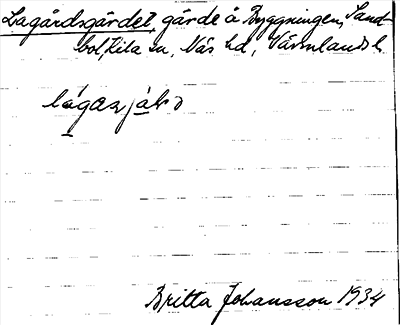 Lagårdsgärdet, gärde å Byggningen, Sand-
bol, Eila sn, Näs hd, Värmlands l.
Britta Johansson 1934